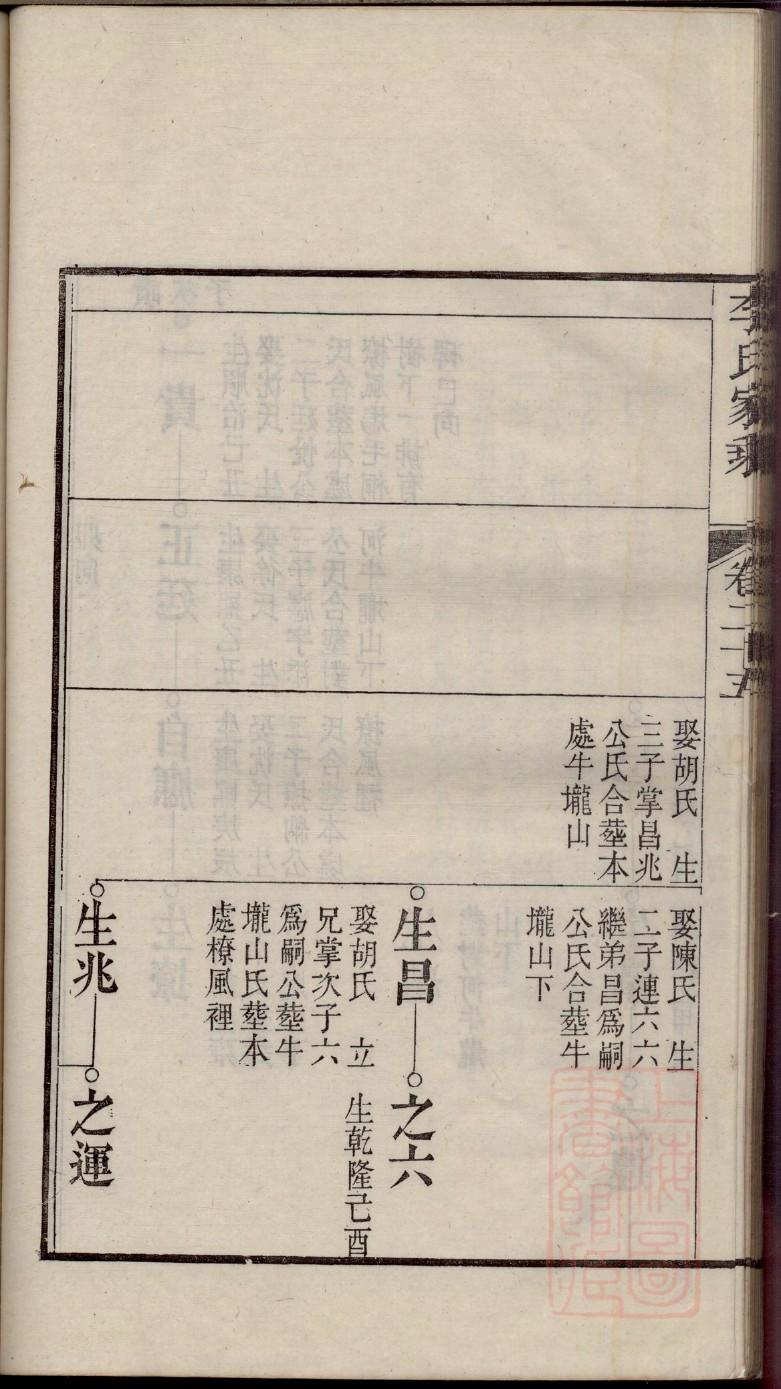 李氏家乘
卷二十五
娶胡氏 生
三子掌昌兆
公氏合塟本
處牛壠山
娶陳氏 生
二子連六六
繼弟昌爲嗣
公氏合塟牛
壠山下
生昌
娶胡氏 立
兄掌次子六
爲嗣公塟牛
壠山氏塟本
處橑風裡
之六
生乾隆己酉
生兆
之運
上海圖書館藏